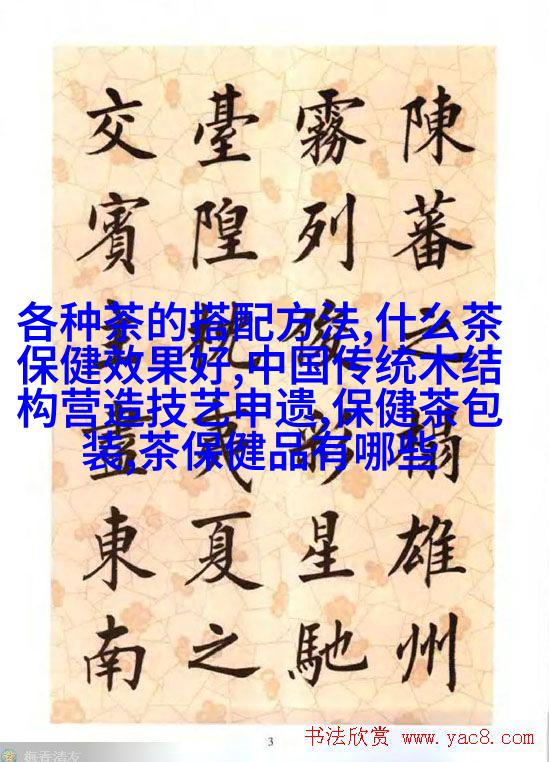 陳蕃之榻雄州
霧列俊彩星馳
臺隍枕夷夏之
交賓主盡東南
各种茶的搭配方法,什么茶
保健效果好,中国传统木结
构营造技艺申遗,保健茶包
装,茶保健品有哪些
3
书法欣赏 www.yac8.com